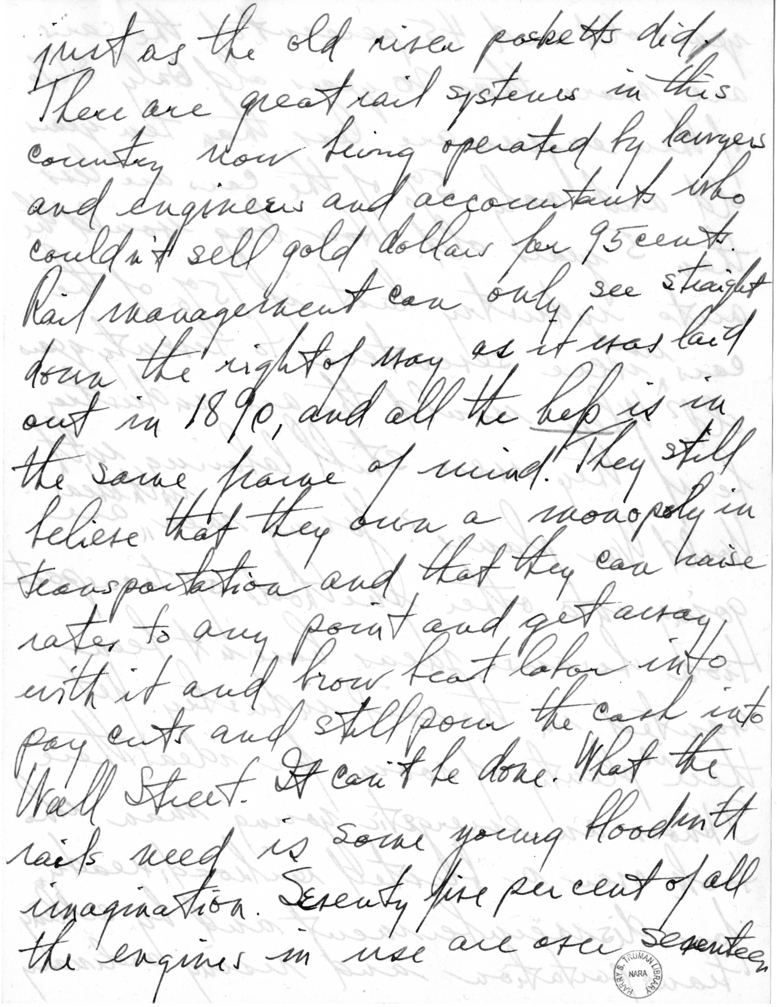 just as the old river packetts did.
There are great rail systems in this
country now being operated by lawyers
and engineers and accountants who
couldn't sell gold dollars for 95 cents.
Rail management can only see straight
down the right of way as it was laid
out in 1890, and all the help is in
the same frame of mind. They still
believe that they own a monopoly in
transportation and that they can raise
rates to any point and get away
with it and brow beat labor into
pay cuts and still pour the cash into
Wall Street. It can't be done. What the
rails need is some young blood with
imagination. Seventy five per cent of all
the engines in use are over seventeen
HARRY S. TRUMAN LIBRARY
NARA